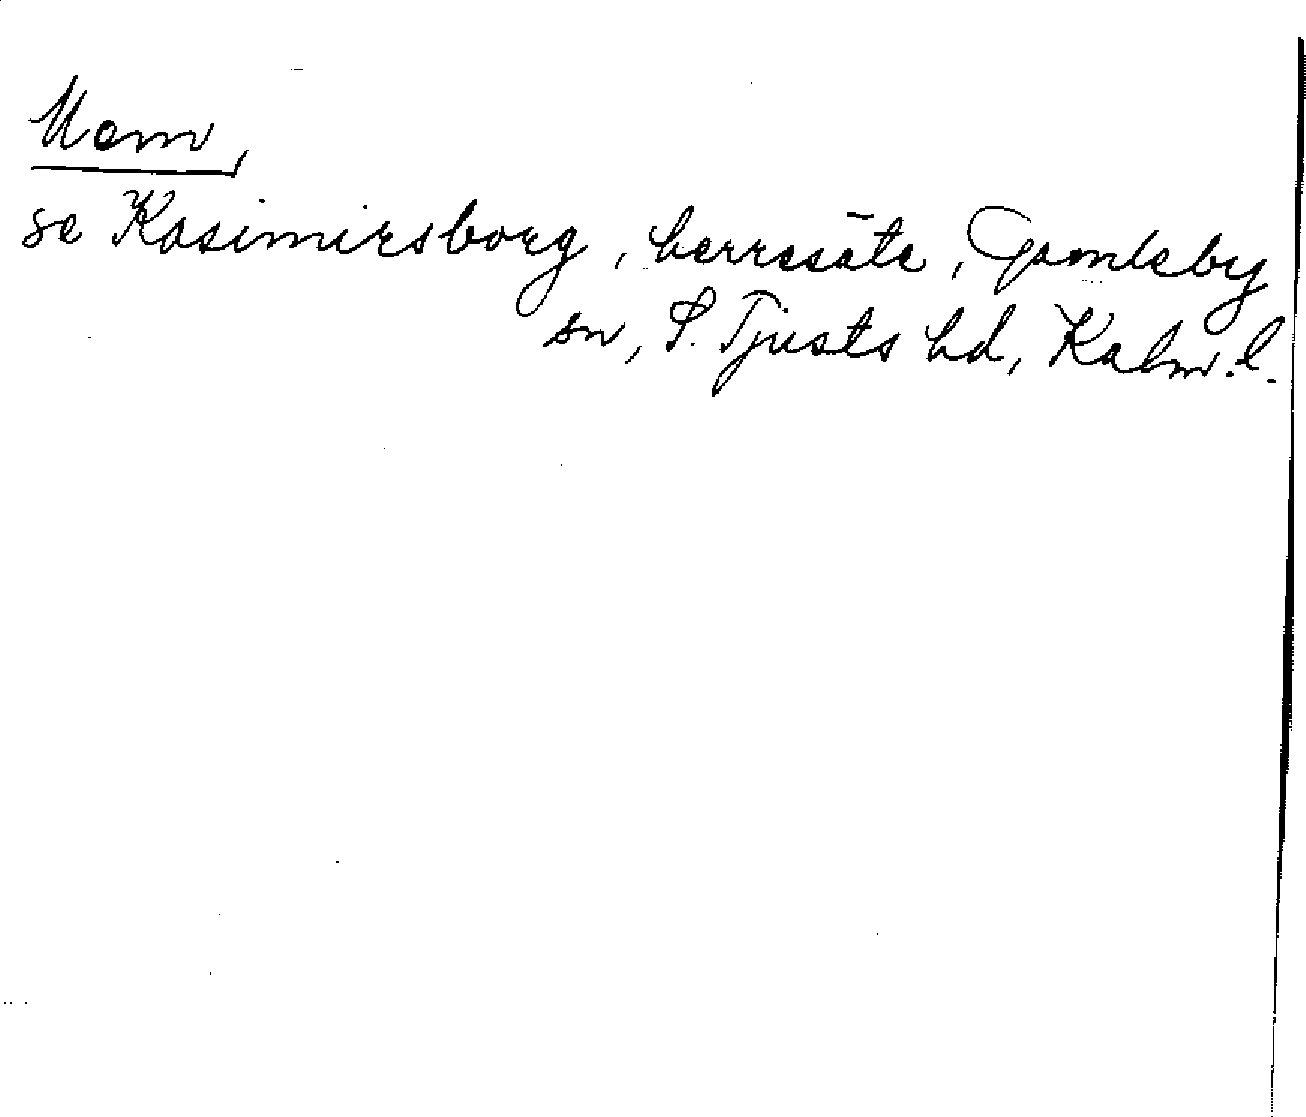 Uem,
se Kasimirsborg, herresäte, Gamleby
sn, S. Tjusts hd, Kalm. l.